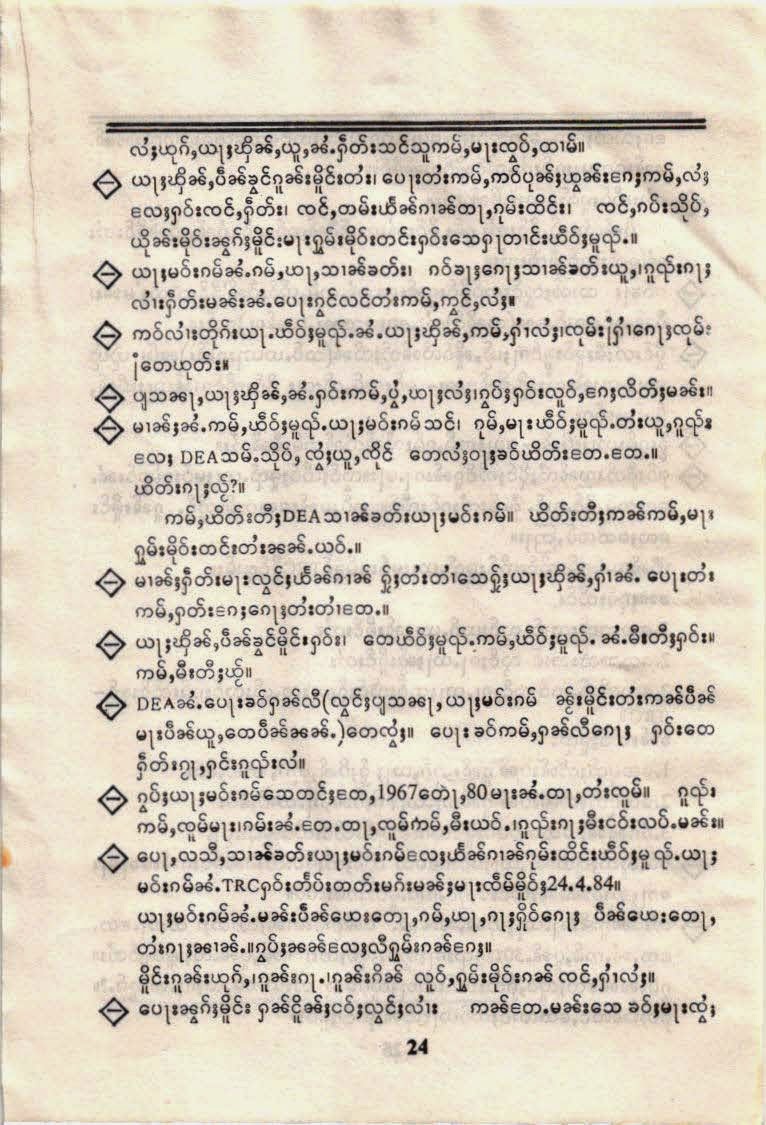 လႆႈယုၵ်ႇယႃႈၾိၼ်ႇယူႇၼႆႉႁဵတ်းသင်သူကမ်ႇမႃးၸွပ်ႇထၢမ်။
ယႃႈၾိၼ်ႇပဵၼ်ၶွင်ၵူၼ်းမိူင်းတႆး၊ ပေႃးတႆးကမ်ႇဢဝ်ပုၼ်ႈၽွၼ်းၵေႃႈကမ်ႇလႆႈ
လႄႈႁဝ်းၸင်ႇႁဵတ်း၊ ၸင်ႇတမ်းၽႅၼ်ၵၢၼ်တႃႇၵုမ်းထိင်း၊ ၸင်ႇၵပ်းသိုပ်ႇ
ယိုၼ်းမိုဝ်းၼွၵ်ႈမိူင်းမႃးႁူမ်းမိုဝ်းတင်းႁဝ်းသေႁႃတၢင်းယဵဝ်ႈမူၺ်ႉ။
ယႃႈမဝ်းၵမ်ၼႆႉၵမ်ႇယႃႇသၢၼ်ၶတ်း၊ ၵဝ်ၶႃႈၵေႃႈသၢၼ်ၶတ်းယူႇ၊ၵူၺ်းၵႃႈ
လၢႆးႁဵတ်းမၼ်းၼႆႉပေႃးၵွင်လင်တႆးကမ်ႇဢွင်ႇလႆႈ။
ဢဝ်လၢႆးတိုၵ်းယႃႉယဵဝ်ႈမူၺ်ႉၼႆႉယႃႈၾိၼ်ႇကမ်ႇႁၢႆလႆႈ၊
တေယုတ်း။
ပျႃသၼႃႇယႃႈၾိၼ်ႇၼႆႉႁဝ်းကမ်ႇပွႆႇယႃႈလႆႈ၊ၵွပ်ႈႁဝ်းလူဝ်ႇၵေႃႈလိတ်ႈမၼ်း။
မၢၼ်ႈၼႆႉကမ်ႇယဵဝ်ႈမူၺ်ႉယႃႈမဝ်းၵမ်သင်၊ ၵုမ်ႇမႃးယဵဝ်ႈမူၺ်ႉတႆးယူႇၵူၺ်း
လႄႈ DEAသမ်ႉသိုပ်ႇၸွႆႈယူႇၸိုင် တေလႆႈဝႃႈၶဝ်ယိတ်းတႄႉတႄႉ။
ယိတ်းၵႃႈလႂ်?။
ကမ်ႇယိတ်းတီႈDEAသၢၼ်ၶတ်းယႃႈမဝ်းၵမ်။ ယိတ်းတီႈဢၼ်ကမ်ႇမႃး
ႁူမ်းမိုဝ်းတင်းတႆးၼၼ်ႉယဝ်ႉ။
မၢၼ်ႈႁဵတ်းမႃးလွင်ႈၽႅၼ်ၵၢၼ် ႁႂ်ႈတႆးတၢႆသေႁႂ်ႈယႃႈၾိၼ်ႇႁၢႆၼႆႉ ပေႃးတႆး
ကမ်ႇႁတ်းၵေႃႈတႆးတၢႆတႄႉ။
ယႃႈၾိၼ်ႇပဵၼ်ၶွင်မိူင်းႁဝ်း၊ တေယဵဝ်ႈမူၺ်ႉကမ်ႇယဵဝ်ႈမူၺ်ႉ ၼႆႉမီးတီႈႁဝ်း။
ကမ်ႇမီးတီႈၽႂ်။
DEAၼႆႉပေႃးၶဝ်ႁၼ်လီ(လွင်ႈပျႃသၼႃႇယႃႈမဝ်းၵမ် ၼႂ်းမိူင်းတႆးဢၼ်ပဵၼ်
မႃးပဵၼ်ယူႇတေပဵၼ်ၼၼ်ႉ)တေၸွႆႈ။ ပေႃးၶဝ်ကမ်ႇႁၼ်လီၵေႃႈ ႁဝ်းတေ
ႁဵတ်းၵႂႃႇႁင်းၵူၺ်းလႆ။
ၵွပ်ႈယႃႈမဝ်းၵမ်သေတင်ႈတႄႇ1967တေႃႇ80မႃးၼႆႉတႃႇတႆးၸူမ်။ ၵူၺ်း
ကမ်ႇၸူမ်မႃး၊ၵမ်းၼႆႉတႄႉတႃႇၸူမ်ကႆမ်ႇမီးယဝ်ႉ၊ၵူၺ်းၵႃႈမီးငဝ်းလပ်ႉမၼ်း။
ပေႃႇလသီႇသၢၼ်ၶတ်းယႃႈမဝ်းၵမ်လႄႈၽႅၼ်ၵၢၼ်ၵုမ်းထိင်းယဵဝ်ႈမူၺ်ႉယႃႈ
မဝ်းၵမ်ၼႆႉTRCႁဝ်းတႅပ်းတတ်းမၵ်းမၼ်ႈမႃးၸဵမ်မိူဝ်ႈ24.4.84။
ယႃႈမဝ်းၵမ်ၼႆႉမၼ်းပဵၼ်ၽေးတေႃႇၵမ်ႇယႃႇၵႃႈႁိုဝ်ၵေႃႈ ပဵၼ်ၽေးတေႃႇ
တႆးၵႃႈၼၢၼ်ႉ။ၵွပ်ႈၼၼ်လႄႈလီႁူမ်းၵၼ်ၵႄႈ။
မိူင်းၵူၼ်းယုၵ်ႇ၊ၵူၼ်းၵႃႉ၊ၵူၼ်းၵိၼ် လူဝ်ႇႁူမ်းမိုဝ်းၵၼ် ၸင်ႇႁၢႆလႆႈ။
ပေႃးၼွၵ်ႈမိူင်း ႁၼ်ငိူၼ်ႈငဝ်ႈလွင်ႈလၢႆး ဢၼ်တႄႉမၼ်းသေ ၶဝ်ႈမႃးၸွႆႈ
24